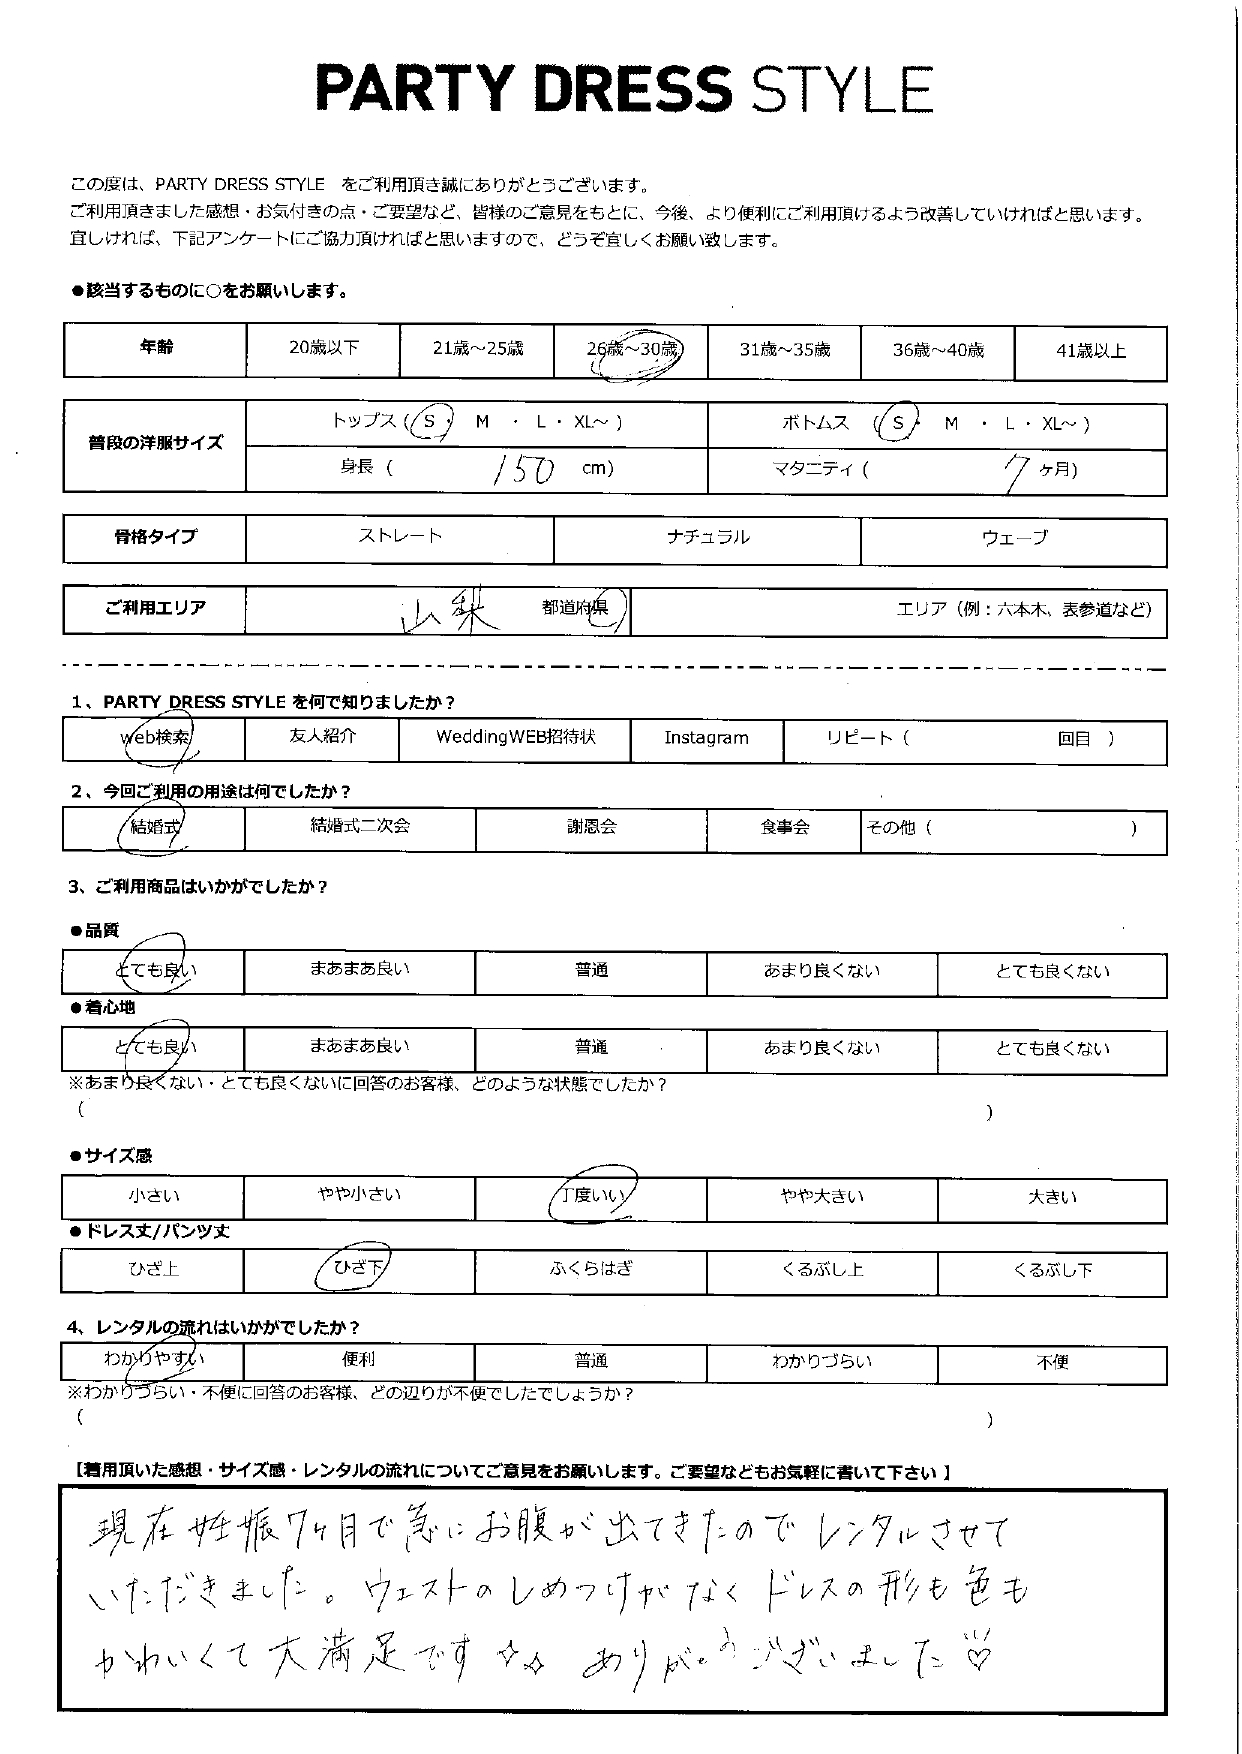 PARTY DRESS STYLE
この度は、PARTY DRESS STYLE をご利用頂き誠にありがとうございます。
ご利用頂きました感想・お気付きの点・ご要望など、皆様のご意見をもとに、今後、より便利にご利用頂けるよう改善していければと思います。
宜しければ、下記アンケートにご協力頂ければと思いますので、どうぞ宜しくお願い致します。
●該当するものに○をお願いします。
年齢 20歳以下 21歳～25歳 26歳～30歳 31歳～35歳 36歳～40歳 41歳以上
普段の洋服サイズ
トップス ( S ・ M ・ L ・ XL～ ) ボトムス ( S ・ M ・ L ・ XL～ )
身長 ( 150 cm) マタニティ ( 7 ヶ月)
骨格タイプ ストレート ナチュラル ウェーブ
ご利用エリア 山梨 都道府県 エリア（例：六本木、表参道など）
1、PARTY DRESS STYLE を何で知りましたか？
web検索 友人紹介 WeddingWEB招待状 Instagram リピート ( 回目 )
2、今回ご利用の用途は何でしたか？
結婚式 結婚式二次会 謝恩会 食事会 その他 ( )
3、ご利用商品はいかがでしたか？
●品質
とても良い まあまあ良い 普通 あまり良くない とても良くない
●着心地
とても良い まあまあ良い 普通 あまり良くない とても良くない
※あまり良くない・とても良くないに回答のお客様、どのような状態でしたか？
( )
●サイズ感
小さい やや小さい 丁度いい やや大きい 大きい
●ドレス丈/パンツ丈
ひざ上 ひざ下 ふくらはぎ くるぶし上 くるぶし下
4、レンタルの流れはいかがでしたか？
わかりやすい 便利 普通 わかりづらい 不便
※わかりづらい・不便に回答のお客様、どの辺りが不便でしたでしょうか？
( )
【着用頂いた感想・サイズ感・レンタルの流れについてご意見をお願いします。ご要望などもお気軽に書いて下さい】
現在妊娠7ヶ月で急にお腹が出てきたのでレンタルさせて
いただきました。ウェストのしめつけがなくドレスの形も色も
かわいくて大満足です✧✧ ありがとうございました♡